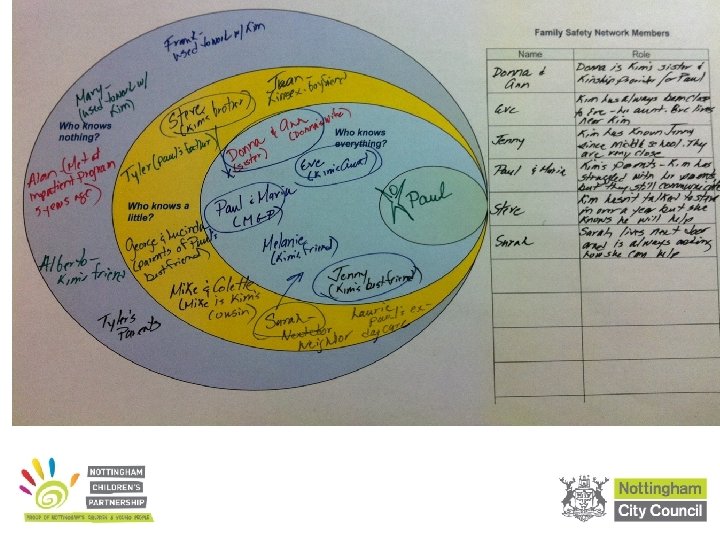 Frank-
used to work w/ Kim
Mary-
(used to work w/
Kim)
Who knows
nothing?
Alan (Met at
inpatient program
5 years ago)
Alberto-
Kim's friend
Tyler's
Parents
Juan-
Kim's ex-boyfriend
Steve
(Kim's brother)
Tyler (Paul's father)
Who knows a
little?
George & Lucinda
(parents of Paul's
best friend)
Mike & Colette
(Mike is Kim's
cousin)
Sarah-
Next door
neighbor
Laurie
Paul's ex-
daycare
Donna & Ann
(sister) (Donna's wife)
Who knows
everything?
Eve
(Kim's Aunt)
Paul & Maria
Melanie
(Kim's friend)
Jenny
(Kim's best friend)
Paul
Family Safety Network Members
Name Role
Donna &
Ann
Donna is Kim's sister &
Kinship provider for Paul
Eve
Kim has always been close
to Eve - her aunt. Eve lives
near Kim
Jenny
Kim has known Jenny
since middle school. They
are very close
Paul & Maria
Kim's parents - Kim has
struggled with her parents
but they still communicate
Steve
Kim hasn't talked to Steve
in over a year but she
knows he will help
Sarah
Sarah lives next door
and is always asking
how she can help
NOTTINGHAM
CHILDREN'S
PARTNERSHIP
PROUD OF NOTTINGHAM'S CHILDREN & YOUNG PEOPLE
Nottingham
City Council